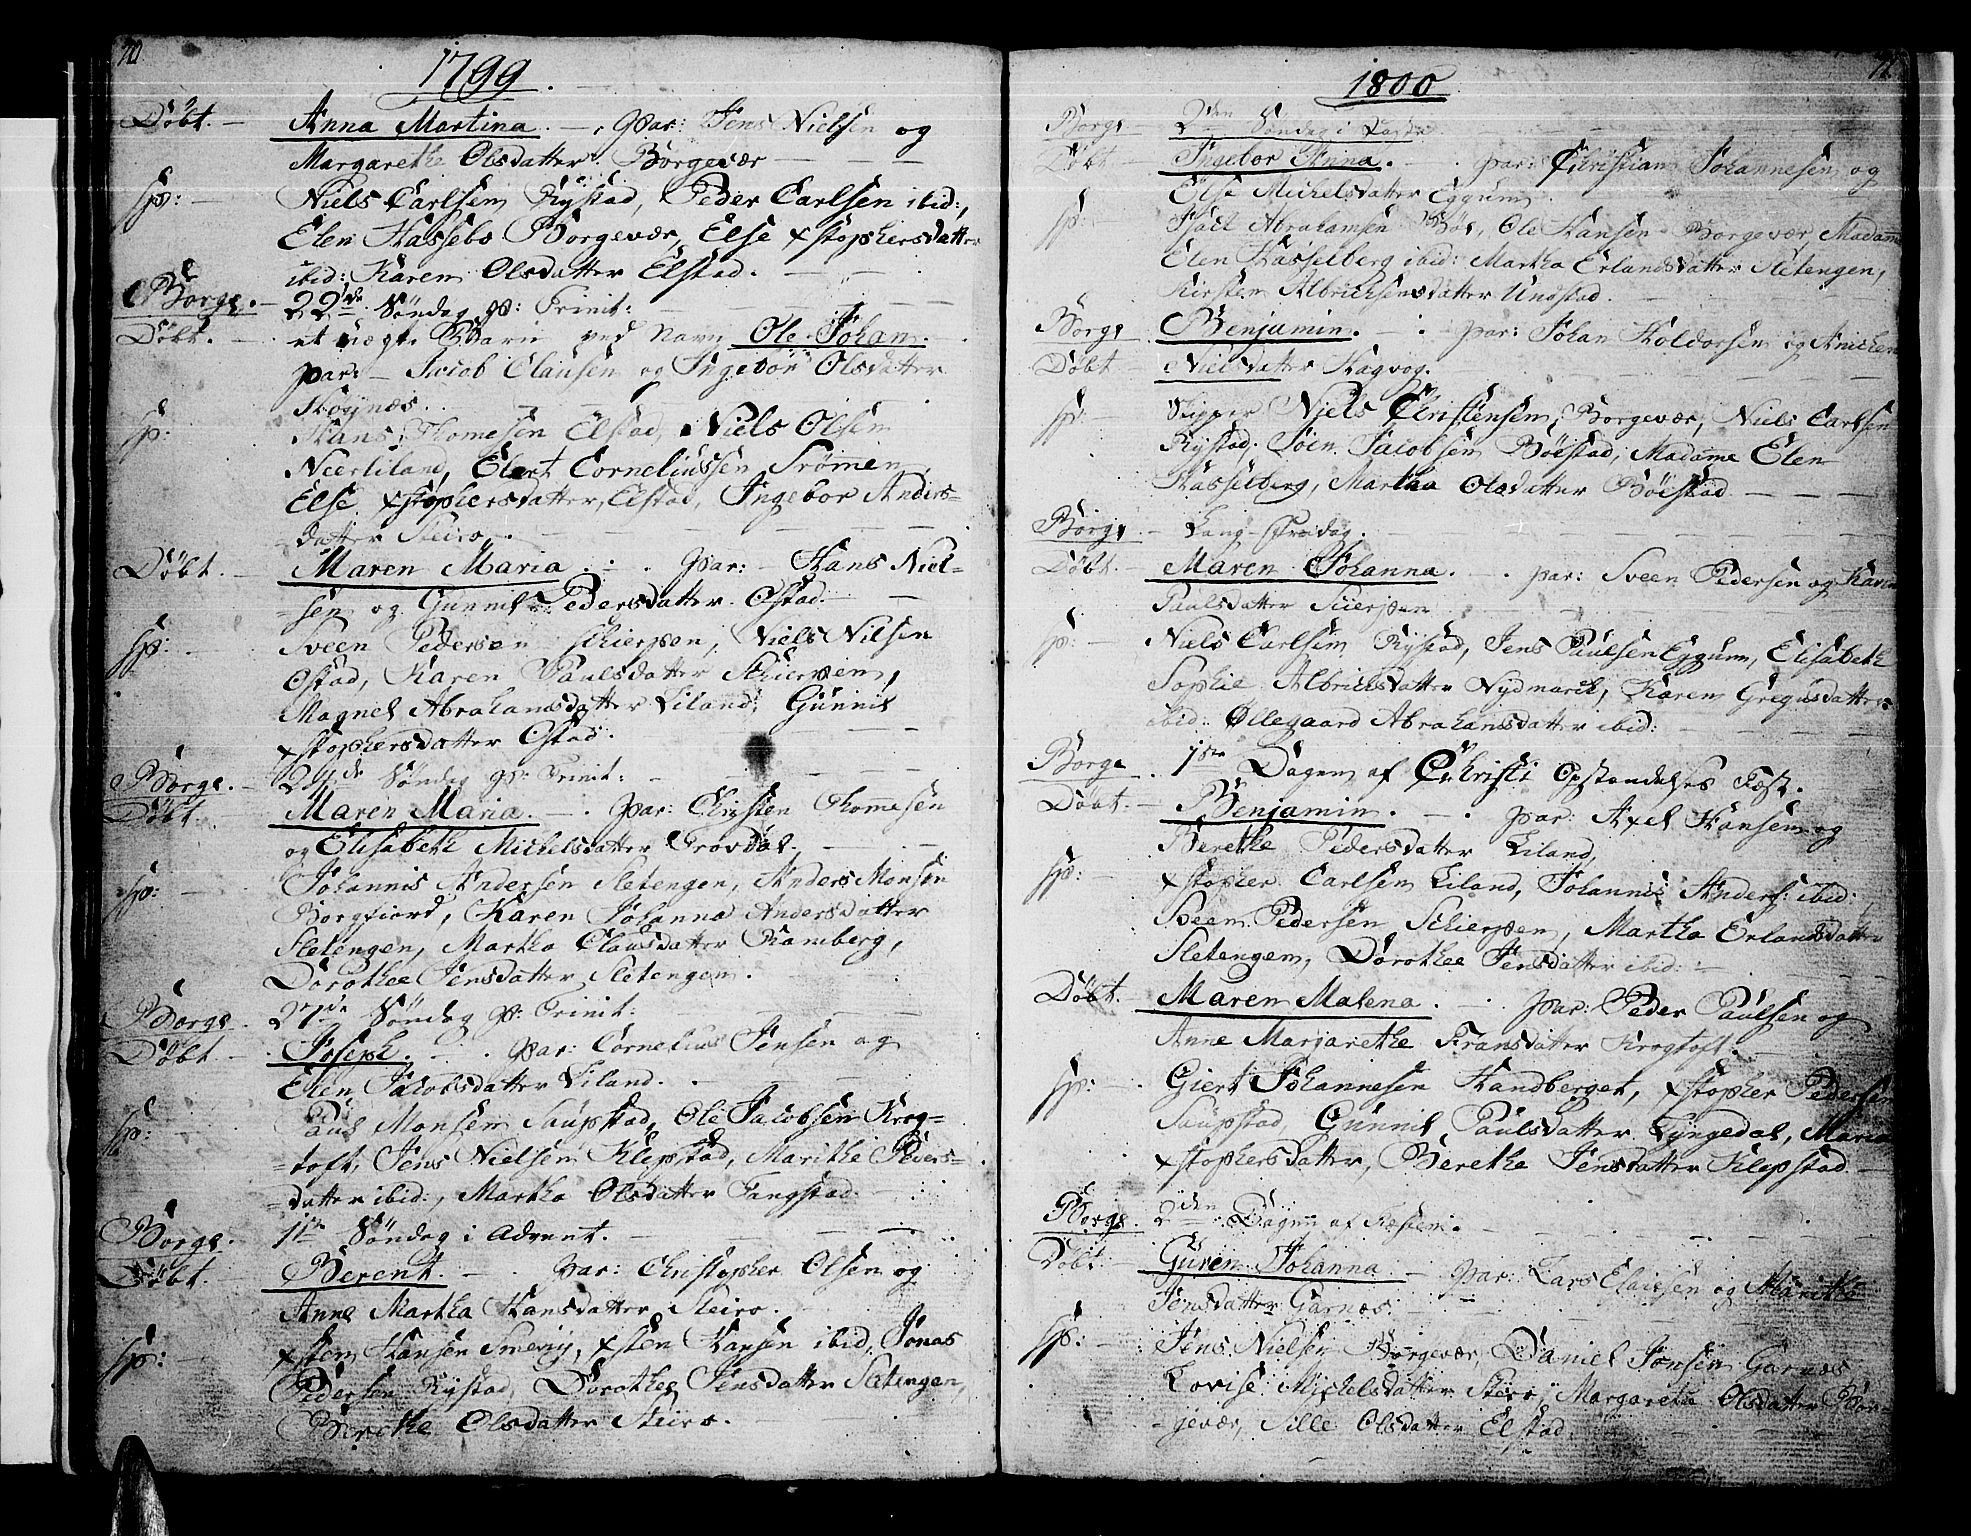 70
1799.
Døbt. — Anna Martina. — Par: Jens Nielsen og
Margarethe Olsdatter Borgevær
Sp: — Niels Carlsen Rystad, Peder Carlsen ibid:,
Elen Hasselb Borgevær, Else xstophersdatter
ibid: Karen Olsdatter Elstad.
Borge. — 22de Søndag p: Trinit:
Døbt. et uægte Barn ved Navn Ole Johan.
par: — Jacob Clausen og Ingebor Olsdatter
Hognæs.
sp: Hans Thomesen Elstad, Niels Olsen
Neerliland, Elert Corneliussen Srømmen,
Else xstophersdatter, Elstad, Ingebor Anders-
datter Steiro.
Døbt. — Maren Maria. par: — Hans Niel-
-sen og Gunnil Pedersdatter Ostad.
sp: Sveen Pedersen Schierpen, Niels Nilsen
Ostad, Karen Paulsdatter Schierpen,
Magnel Abrahamsdatter Liland, Gunnil
xstophersdatter Ostad.
Borge. — 24de Søndag p: Trinit:
Døbt. Maren Maria. — par: Christen Thomesen
og Elisabeth Michelsdatter Provdal.
sp: Johannis Andersen Sletengen, Anders Monsen
Borgfiord, Karen Johanna Andersdatter
Sletengen, Martha Clausdatter Ramberg,
Dorothee Jensdatter Sletengen.
Borge. 27de Søndag p: Trinit:
Døbt — Joseph. par: Cornelius Jensen og
Elen Jacobsdatter Liland.
sp: Paul Monsen Saupstad, Ole Jacobsen Krog-
-toft, Jens Nielsen Klepstad, Marithe Peders-
-datter ibid:, Martha Olsdatter Tangstad.
Borge. 1ste Søndag i Advent.
Døbt. Berent. — par: Christopher Olsen og
Anne Martha Hansdatter Steiro.
sp: — xsten Hansen Smevig, xsten Hansen ibid, Jonas
Pedersen Rystad, Dorothe Jensdatter Sletengen,
Berethe Olsdatter Steiro.
71
1800
Borge — 2den Søndag i Faste
Døbt — Ingebor Anna. par: Christian Johannesen og
Else Michelsdatter Eggum.
sp: Isach Abrahamsen Bøe, Ole Hansen Borgevær, Madam
Elen Hasselberg ibid: Martha Erlandsdatter Sletengen,
Kirsten Albrichsensdatter Unstad.
Borge Benjamin. — par: Johan Holdorsen og Anichen
Døbt — Nielsdatter Hagvog.
sp: Skipper Niels Christensen, Borgevær, Niels Carlsen
Rystad, Søen Jacobsen Bøestad, Madame Elen
Hasselberg, Martha Olsdatter Bøestad
Borge — Lang-fredag.
Døbt. — Maren Johanna. par: Sveen Pedersen og Karen
Paulsdatter Scierpen
sp: — Niels Carlsen Rystad, Jens Paulsen Eggum, Elisabeth
Sophie Albrichsdatter Nydmarch, Karen Gregusdatter
ibid: Ollegaard Abrahamsdatter ibid:
Borge 1ste Dagen af Christi Opstandelses Fest.
Døbt. — Benjamin. par: Axel Hansen og
Berethe Pedersdatter Liland,
sp: — xstopher Carlsen Liland, Johannis Anders: ibid:
Sveen Pedersen Schierpen, Martha Erlandsdatter
Sletengen, Dorothee Jensdatter ibid:
Døbt. Maren Malena. par: Peder Paulsen og
Anne Marjarethe Fransdatter Krogtoft.
sp: — Giert Johannesen Handberget, xstopher Pedersen
Saupstad, Gunnil Paulsdatter Lyngedal, Maria
xstophersdatter, Berethe Jensdatter Klepstad
Borge. 2den Dagen af Festen.
Døbt. — Guren Johanna — par: Lars Elaisen og Marithe
Jensdatter Garnæs
sp: Jens Nielsen Borgevær, Daniel Jonsen Garnæs
Lovise Michelsdatter Steiro, Margarethe Olsdatter Bor-
-gevær, Sille Olsdatter Elstad.